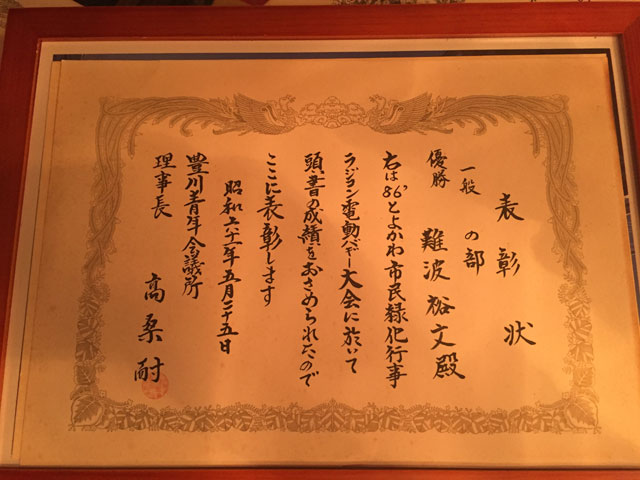 表彰状
一般の部
優勝 難波裕文殿
右は86'とよかわ市民緑化行事
ラジコン電動バギー大会に於いて
頭書の成績をおさめられたので
ここに表彰します
昭和六十一年五月二十五日
豊川青年会議所
理事長 高桒耐